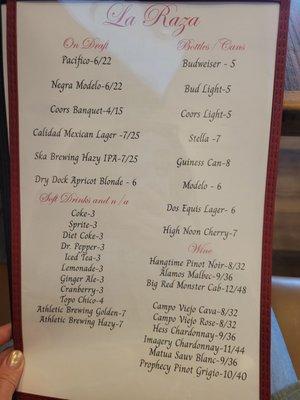 La Raza
On Draft
Pacifico-6/22
Negra Modelo-6/22
Coors Banquet-4/15
Calidad Mexican Lager -7/25
Ska Brewing Hazy IPA-7/25
Dry Dock Apricot Blonde - 6
Soft Drinks and n/a
Coke-3
Sprite-3
Diet Coke-3
Dr. Pepper-3
Iced Tea-3
Lemonade-3
Ginger Ale-3
Cranberry-3
Topo Chico-4
Athletic Brewing Golden-7
Athletic Brewing Hazy-7
Bottles/Cans
Budweiser - 5
Bud Light-5
Coors Light-5
Stella -7
Guiness Can-8
Modelo - 6
Dos Equis Lager- 6
High Noon Cherry-7
Wine
Hangtime Pinot Noir-8/32
Alamos Malbec-9/36
Big Red Monster Cab-12/48
Campo Viejo Cava-8/32
Campo Viejo Rose-8/32
Hess Chardonnay-9/36
Imagery Chardonnay-11/44
Matua Sauv Blanc-9/36
Prophecy Pinot Grigio-10/40